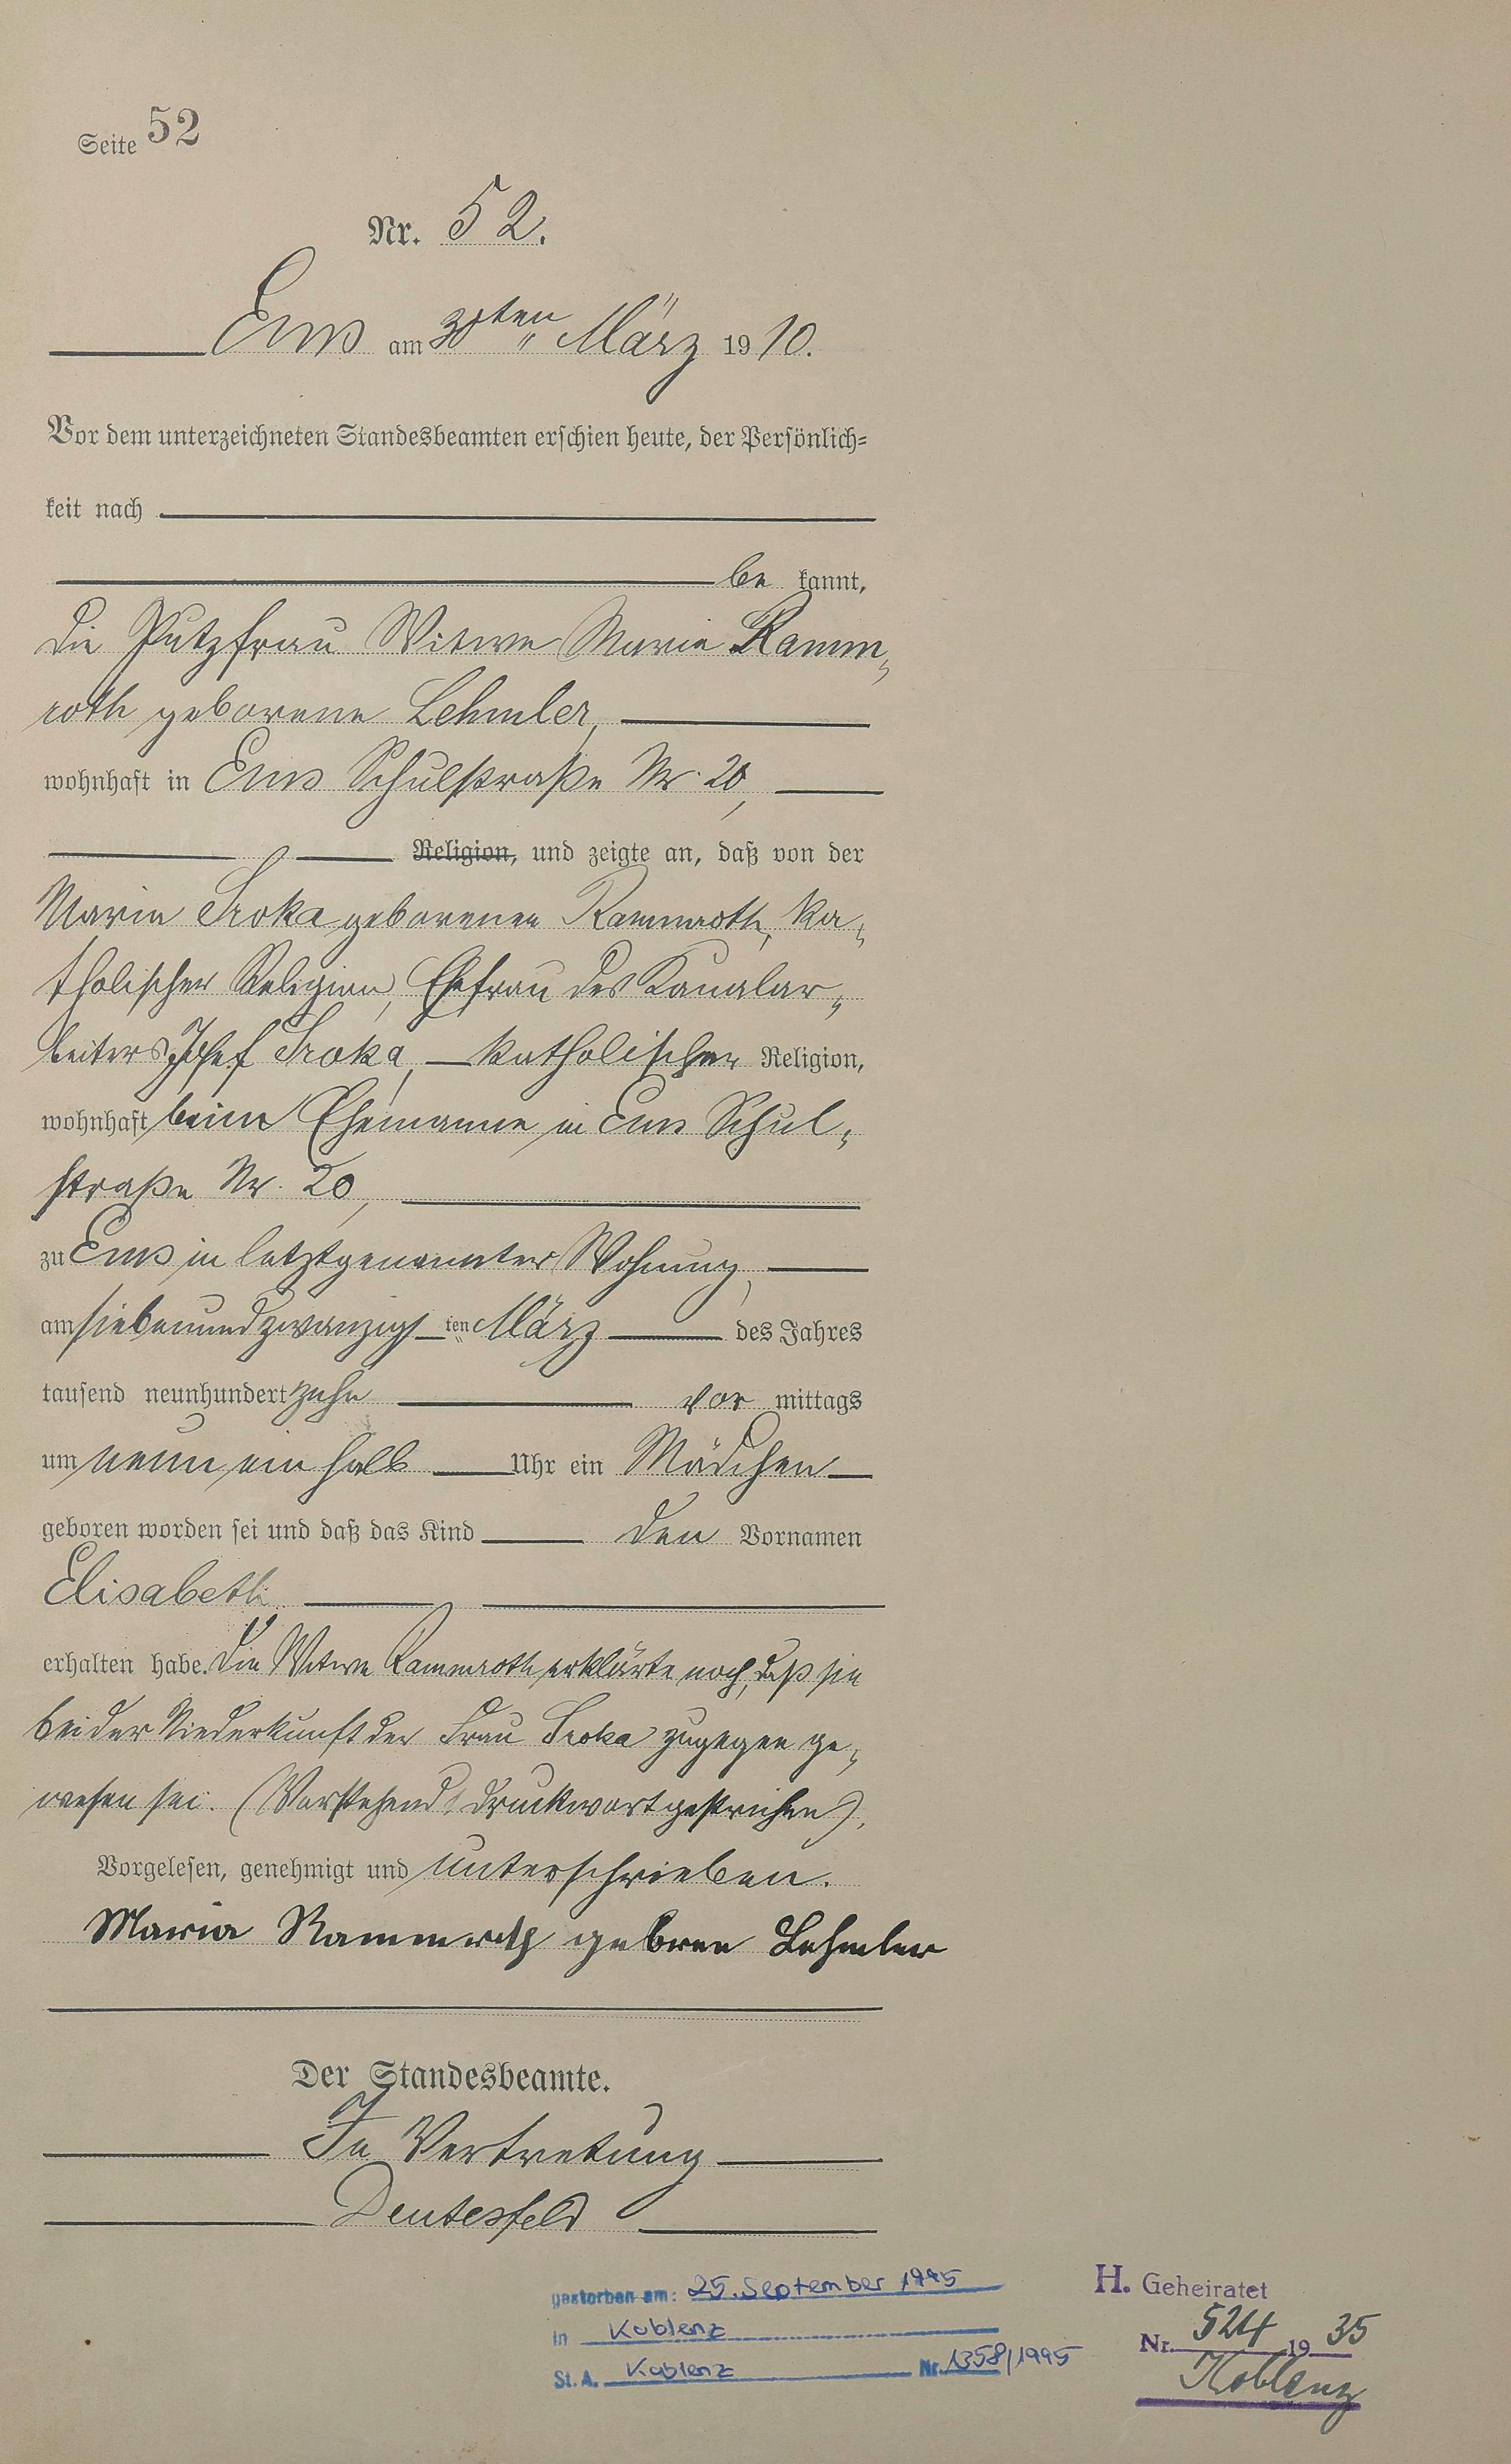 Seite 52
Nr. 52.
Ems am 30ten März 1910.
Vor dem unterzeichneten Standesbeamten erschien heute, der Persönlich-
keit nach
be kannt,
die Putzfrau Witwe Maria Ramm-
roth geborene Lehmler,
wohnhaft in Ems Schulstraße Nr. 20,
Religion, und zeigte an, daß von der
Maria Sroka geborenen Rammroth, ka-
tholischer Religion, Ehefrau des Kanalar-
beiters Josef Sroka, katholischer Religion,
wohnhaft beim Ehemanne in Ems Schul-
straße Nr. 20,
zu Ems in letztgenannter Wohnung,
am siebenundzwanzigsten März des Jahres
tausend neunhundert zehn vor mittags
um neun ein halb Uhr ein Mädchen
geboren worden sei und daß das Kind den Vornamen
Elisabeth
erhalten habe. Die Witwe Rammroth erklärte noch, daß sie
bei der Niederkunft der Frau Sroka zugegen ge-
wesen sei. (Vorstehend 1 Druckwort gestrichen).
Vorgelesen, genehmigt und unterschrieben.
Maria Rammroth geboren Lehmler
Der Standesbeamte.
In Vertretung
Deutesfeld
gestorben am: 25. September 1995
in Koblenz
St. A. Koblenz Nr. 1358/1995
H. Geheiratet
Nr. 524 1935
Koblenz